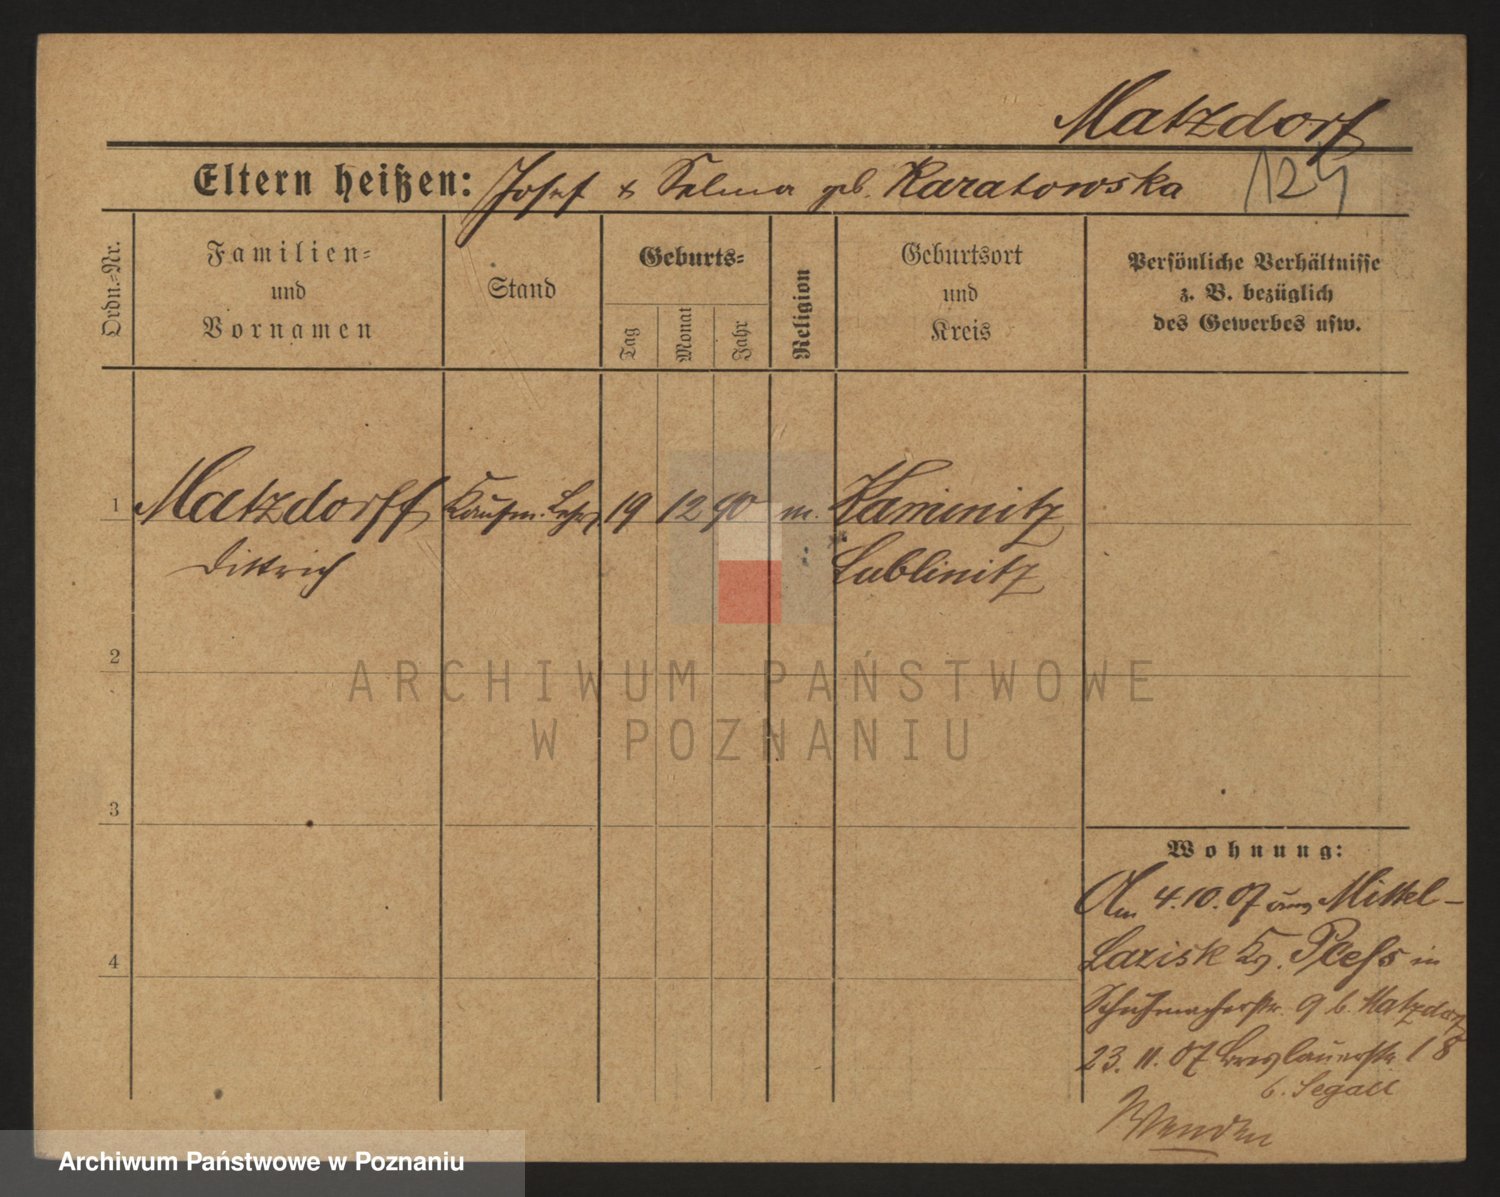 Matzdorf
124
Eltern heißen: Josef & Selma geb. Karatowska
Ordn.-Nr.
Familien-
und
Vornamen
Stand
Geburts-
Tag
Monat
Jahr
Religion
Geburtsort
und
Kreis
Persönliche Verhältnisse
z. B. bezüglich
des Gewerbes usw.
1 Matzdorff Kaufm. Lehrl 19 12 90 m. Kaminitz
Dittrich Lublinitz
2
3
4
ARCHIWUM PAŃSTWOWE
W POZNANIU
Wohnung:
Am 4.10.07 aus Mittel-
Lazisk Kr. Pless in
Schuhmacherstr. 9 b. Matzdorf
23. 11. 07 Breslauerstr. 18
b. Segall
Wenden
Archiwum Państwowe w Poznaniu